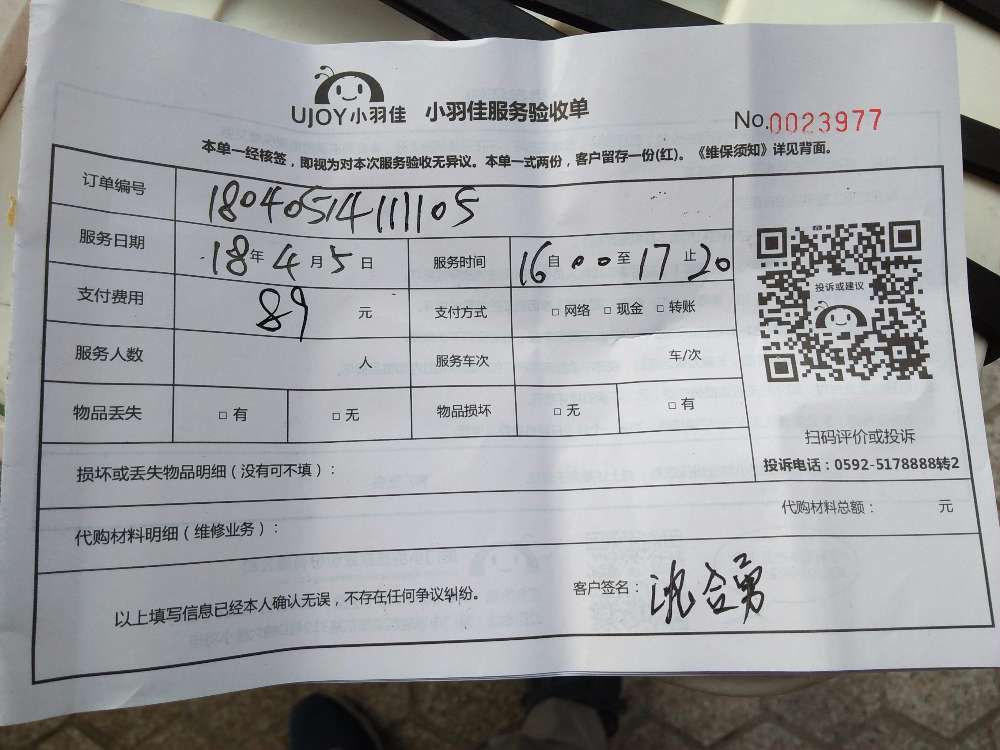 UJOY小羽佳 小羽佳服务验收单 No.0023977
本单一经核签，即视为对本次服务验收无异议。本单一式两份，客户留存一份(红)。《维保须知》详见背面。
订单编号 18040514111105
服务日期 18年4月5日 服务时间 16自00至17止20
支付费用 89 元 支付方式 □网络 □现金 □转账
投诉或建议
服务人数 人 服务车次 车/次
物品丢失 □有 □无 物品损坏 □无 □有
扫码评价或投诉
投诉电话：0592-5178888转2
损坏或丢失物品明细（没有可不填）：
代购材料明细（维修业务）： 代购材料总额： 元
以上填写信息已经本人确认无误，不存在任何争议纠纷。 客户签名：沈合勇